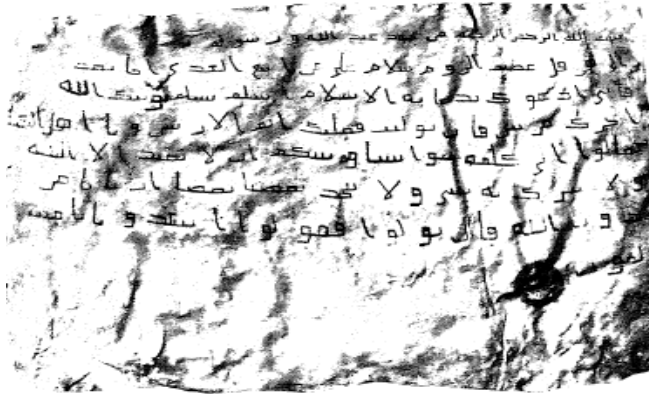 بسم الله الرحمن الرحيم من محمد عبد الله ورسوله
الى هرقل عظيم الروم سلام على من اتبع الهدى اما بعد
فانى ادعوك بدعاية الاسلام اسلم تسلم يوتك الله
اجرك مرتين فان توليت فعليك اثم الاريسين ويا اهل الكتاب
تعالوا الى كلمة سوا بيننا وبينكم الا نعبد الا الله
ولا نشرك به شيا ولا يتخذ بعضنا بعضا اربابا من
دون الله فان تولوا فقولوا اشهدوا بانا مس
لمون